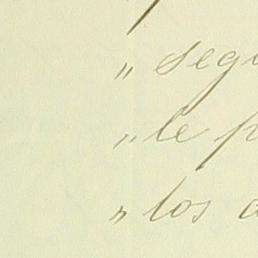 " segu
" le p
" los a